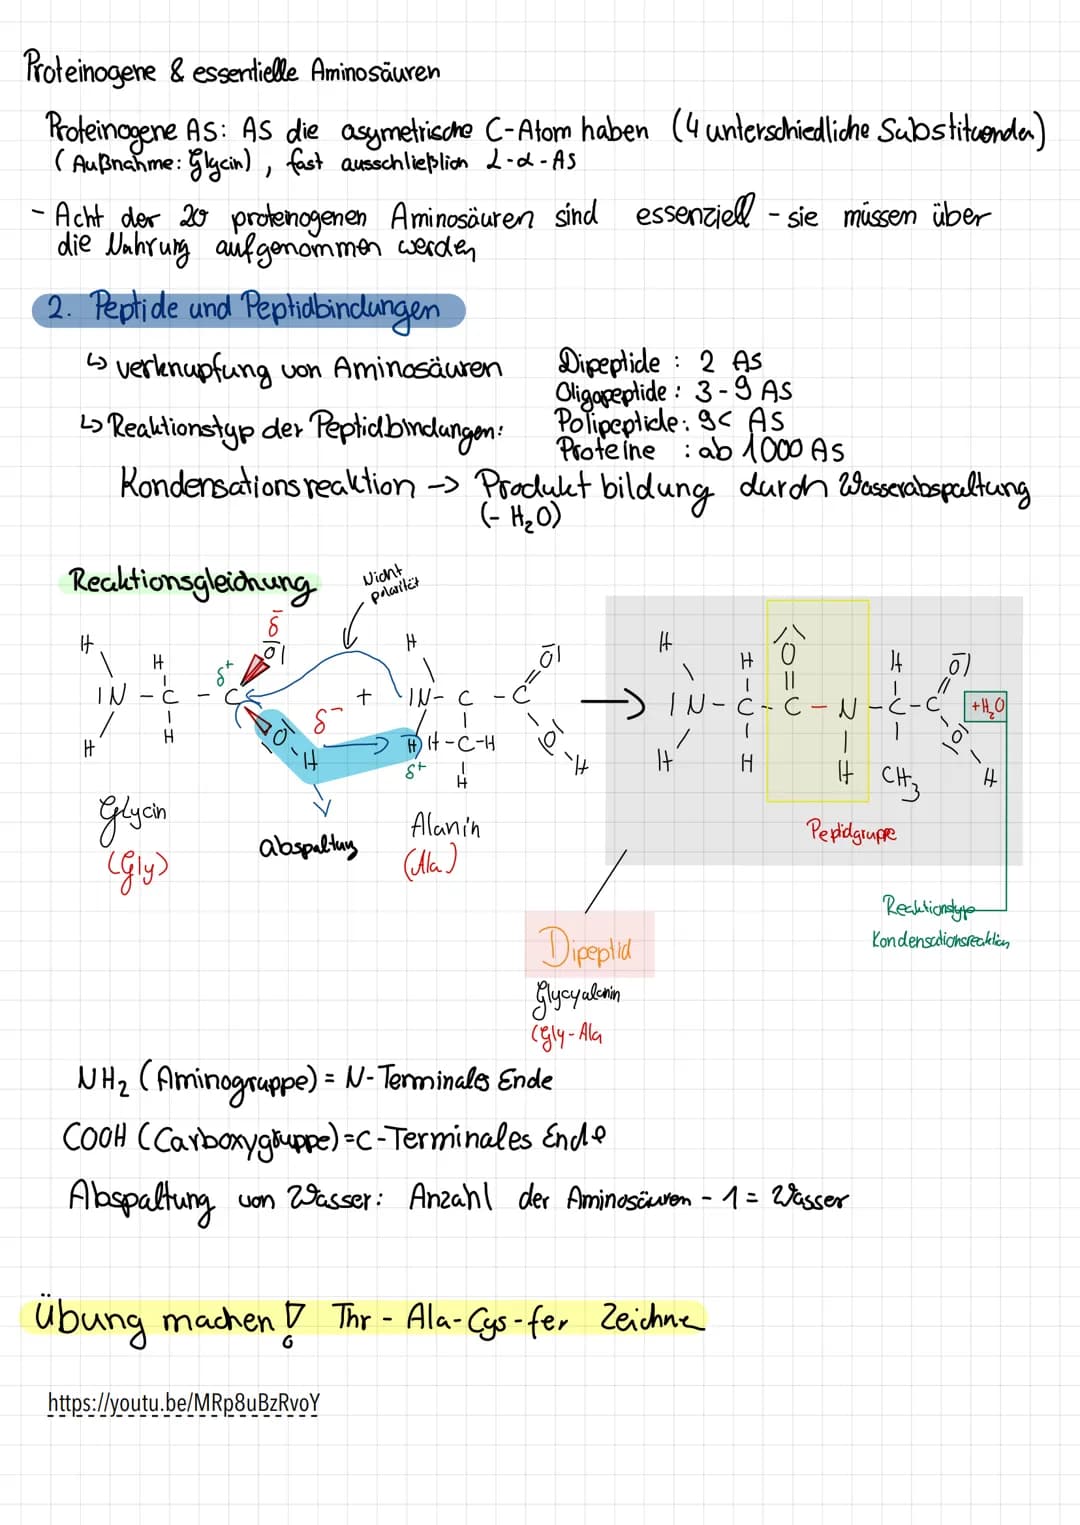 Proteinogene & essentielle Aminosäuren
Proteinogene AS: AS die asymetrische C-Atom haben (4 unterschiedliche Substituenden)
(Außnahme: Glycin), fast ausschließlich L-α-AS
- Acht der 20 proteinogenen Aminosäuren sind essenziell - sie müssen über
die Nahrung aufgenommen werden
2. Peptide und Peptidbindungen
↳ verknüpfung von Aminosäuren
Dipeptide : 2 AS
Oligopeptide : 3-9 AS
Polipeptide: 9< AS
Proteine : ab 1000 AS
↳ Reaktionstyp der Peptidbindungen:
Kondensationsreaktion -> Produkt bildung durch Wasserabspaltung
(- H₂O)
Reaktionsgleichung
Nicht
polarität
H H δ⁺ δ⁻ O H O H H O H O
IN - C - C + IN - C - C → IN - C - C - N - C - C +H₂O
H H O H δ⁻ H H - C - H O H H H H CH₃ O H
δ⁺ H
Glycin
(Gly)
abspaltung
Alanin
(Ala)
Peptidgruppe
Reaktionstyp
Kondensationsreaktion
Dipeptid
Glycyalanin
(Gly-Ala
NH₂ (Aminogruppe) = N-Terminales Ende
COOH (Carboxygruppe) = C-Terminales Ende
Abspaltung von Wasser: Anzahl der Aminosäuren - 1 = Wasser
Übung machen! Thr - Ala - Cys - fer Zeichne
https://youtu.be/MRp8uBzRvoY